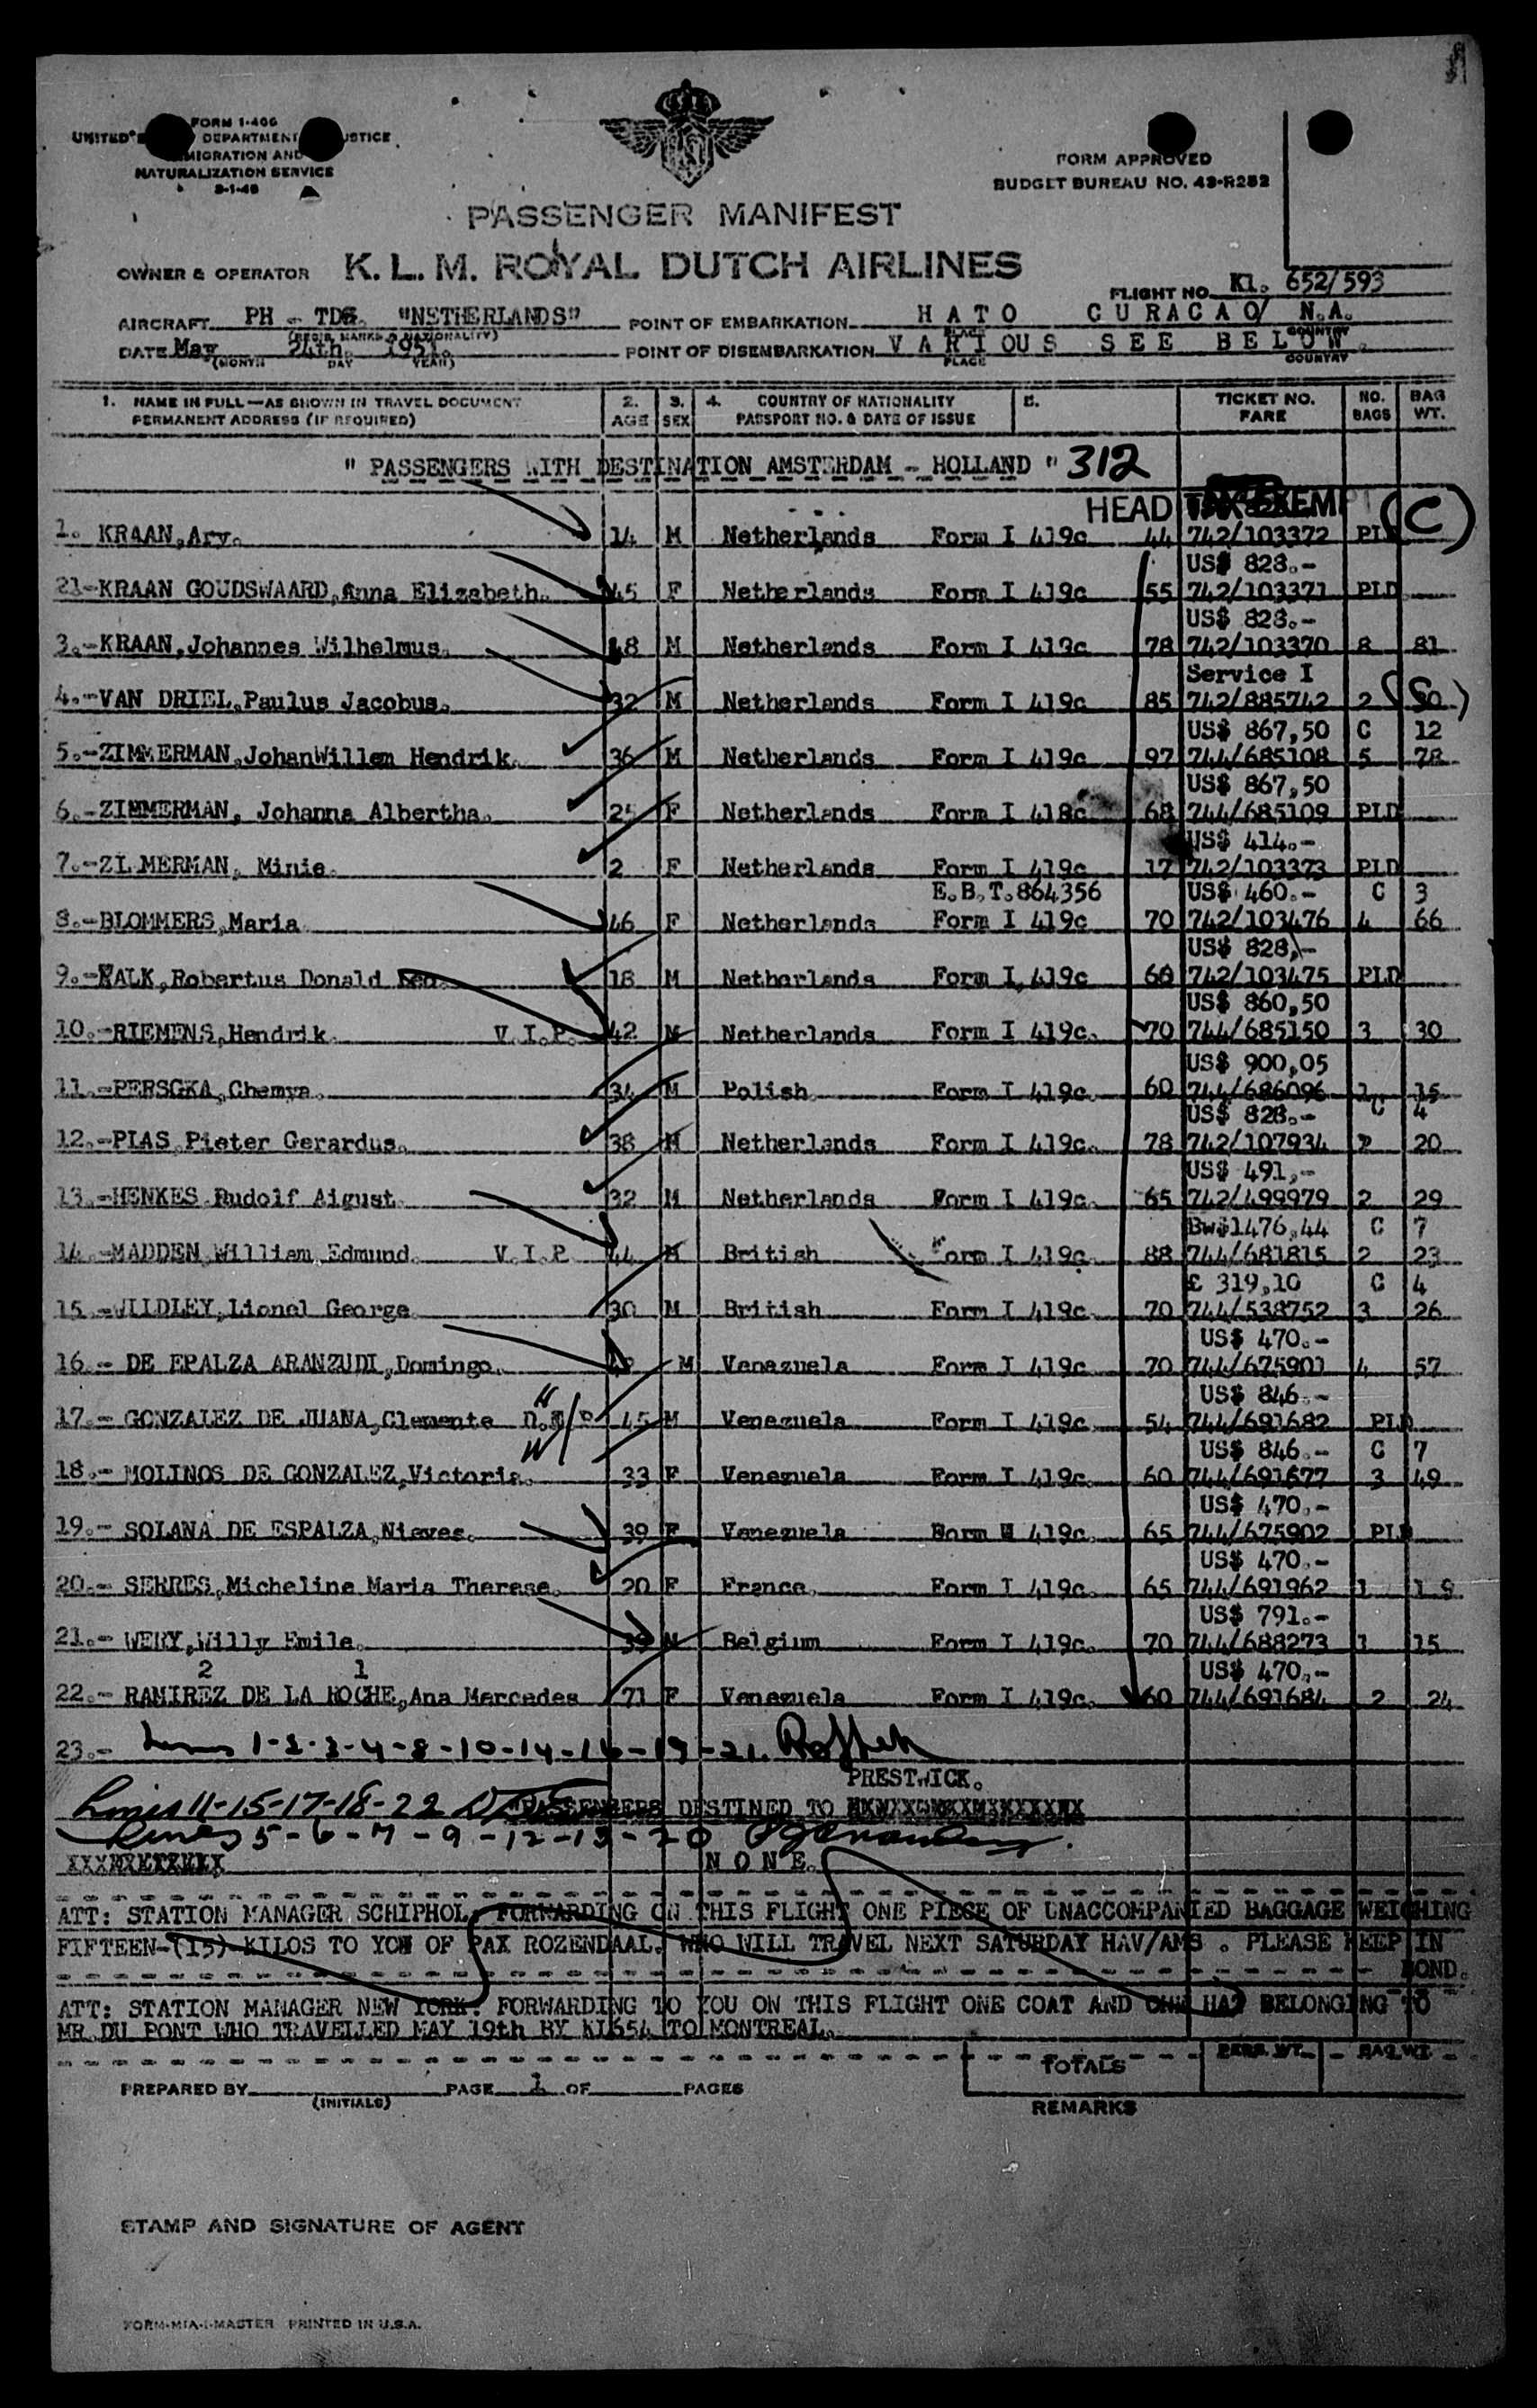 FORM I-466
UNITED DEPARTMENT JUSTICE
IMMIGRATION AND
NATURALIZATION SERVICE
FORM APPROVED
BUDGET BUREAU NO. 43-R252
PASSENGER MANIFEST
OWNER & OPERATOR K. L. M. ROYAL DUTCH AIRLINES
FLIGHT NO. Kl. 652/593
AIRCRAFT PH - TDG. "NETHERLANDS" POINT OF EMBARKATION HATO CURACAO/ N.A.
(REGIS. MARKS & NATIONALITY) PLACE COUNTRY
DATE May 24th. 1951. POINT OF DISEMBARKATION VARIOUS SEE BELOW.
(MONTH DAY YEAR) PLACE COUNTRY
1. NAME IN FULL—AS SHOWN IN TRAVEL DOCUMENT 2. 3. 4. COUNTRY OF NATIONALITY 5. TICKET NO. NO. BAG
PERMANENT ADDRESS (IF REQUIRED) AGE SEX PASSPORT NO. & DATE OF ISSUE FARE BAGS WT.
" PASSENGERS WITH DESTINATION AMSTERDAM - HOLLAND " 312
HEAD TAX EXEMPT (C)
1. KRAAN,Ary. 14 M Netherlands Form I 419c 44 742/103372 PLD
US$ 828.-
21-KRAAN GOUDSWAARD,Anna Elizabeth. 45 F Netherlands Form I 419c 55 742/103371 PLD
US$ 828.-
3.-KRAAN,Johannes Wilhelmus. 48 M Netherlands Form I 419c 78 742/103370 8 81
Service I
4.-VAN DRIEL,Paulus Jacobus. 32 M Netherlands Form I 419c 85 742/885742 2
US$ 867,50 C 12
5.-ZIMMERMAN,JohanWillem Hendrik. 36 M Netherlands Form I 419c 97 744/685108 5 78
US$ 867,50
6.-ZIMMERMAN, Johanna Albertha. 25 F Netherlands Form I 418c 68 744/685109 PLD
US$ 414.-
7.-ZI MERMAN, Minie. 2 F Netherlands Form I 419c 17 742/103373 PLD
E.B.T.864356 US$ 460.- C 3
8.-BLOMMERS,Maria 46 F Netherlands Form I 419c 70 742/103476 4 66
US$ 828,-
9.-VALK,Robertus Donald Leo. 18 M Netherlands Form I 419c 66 742/103475 PLD
US$ 860,50
10.-RIEMENS,Hendrik. V.I.P. 42 M Netherlands Form I 419c. 70 744/685150 3 30
US$ 900,05
11.-PERSGKA,Chemya. 34 M Polish Form I 419c. 60 744/686096 1 15
US$ 828.- C 4
12.-PLAS,Pieter Gerardus. 38 M Netherlands Form I 419c. 78 742/107934 2 20
US$ 491,-
13.-HENKES Rudolf Aigust. 32 M Netherlands Form I 419c. 65 742/499979 2 29
Bw$1476,44 C 7
14.-MADDEN,William Edmund. V.I.P. 44 M British Form I 419c. 88 744/681815 2 23
£ 319,10 C 4
15.-WILDLEY,Lionel George 30 M British Form I 419c. 70 744/538752 3 26
US$ 470.-
16.- DE EPALZA ARANZUDI,Domingo. M Venezuela Form I 419c 70 744/675901 4 57
US$ 846.-
17.- GONZALEZ DE JUANA,Clemente 45 M Venezuela Form I 419c. 54 744/691682 PLD
US$ 846.- C 7
18.- MOLINOS DE GONZALEZ,Victoria. 33 F Venezuela Form I 419c. 60 744/691677 3 49
US$ 470.-
19.- SOLANA DE ESPALZA,Nieves. 39 F Venezuela Form I 419c. 65 744/675902 PLD
US$ 470.-
20.- SERRES,Micheline Maria Therese. 20 F France. Form I 419c. 65 744/691962 1 19
US$ 791.-
21.- WERY,Willy Emile. 39 M Belgium Form I 419c. 70 744/688273 1 15
2 1 US$ 470.-
22.- RAMIREZ DE LA ROCHE,Ana Mercedes 71 F Venezuela Form I 419c. 60 744/691684 2 24
23.- Lines 1-2-3-4-8-10-14-16-19-21.
PRESTWICK.
Lines 11-15-17-18-22 PASSENGERS DESTINED TO
Lines 5-6-7-9-12-13-20
NONE.
ATT: STATION MANAGER SCHIPHOL. FORWARDING ON THIS FLIGHT ONE PIECE OF UNACCOMPANIED BAGGAGE WEIGHING
FIFTEEN-(15)-KILOS TO YOU OF PAX ROZENDAAL. WHO WILL TRAVEL NEXT SATURDAY HAV/AMS . PLEASE KEEP IN
BOND.
ATT: STATION MANAGER NEW YORK. FORWARDING TO YOU ON THIS FLIGHT ONE COAT AND ONE HAT BELONGING TO
MR DU PONT WHO TRAVELLED MAY 19th BY KL654 TO MONTREAL.
TOTALS PERS. WT. BAG WT.
PREPARED BY PAGE 1 OF PAGES
(INITIALS) REMARKS
STAMP AND SIGNATURE OF AGENT
FORM-MIA-I-MASTER PRINTED IN U.S.A.